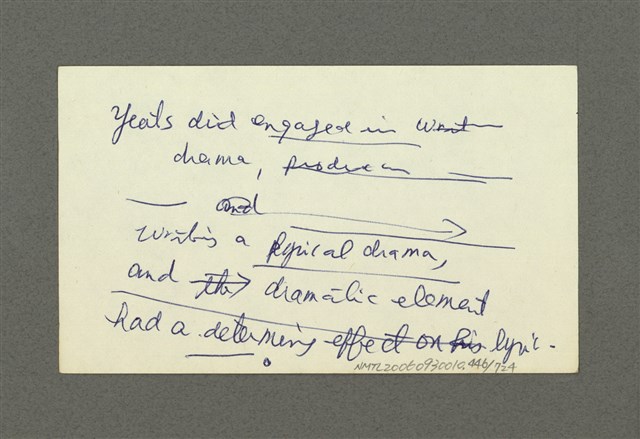 Yeats did engaged in
drama,
and
writing a lyrical drama,
and the dramatic element
had a determing effect on his lyric.
NMTL20060930010.446/724